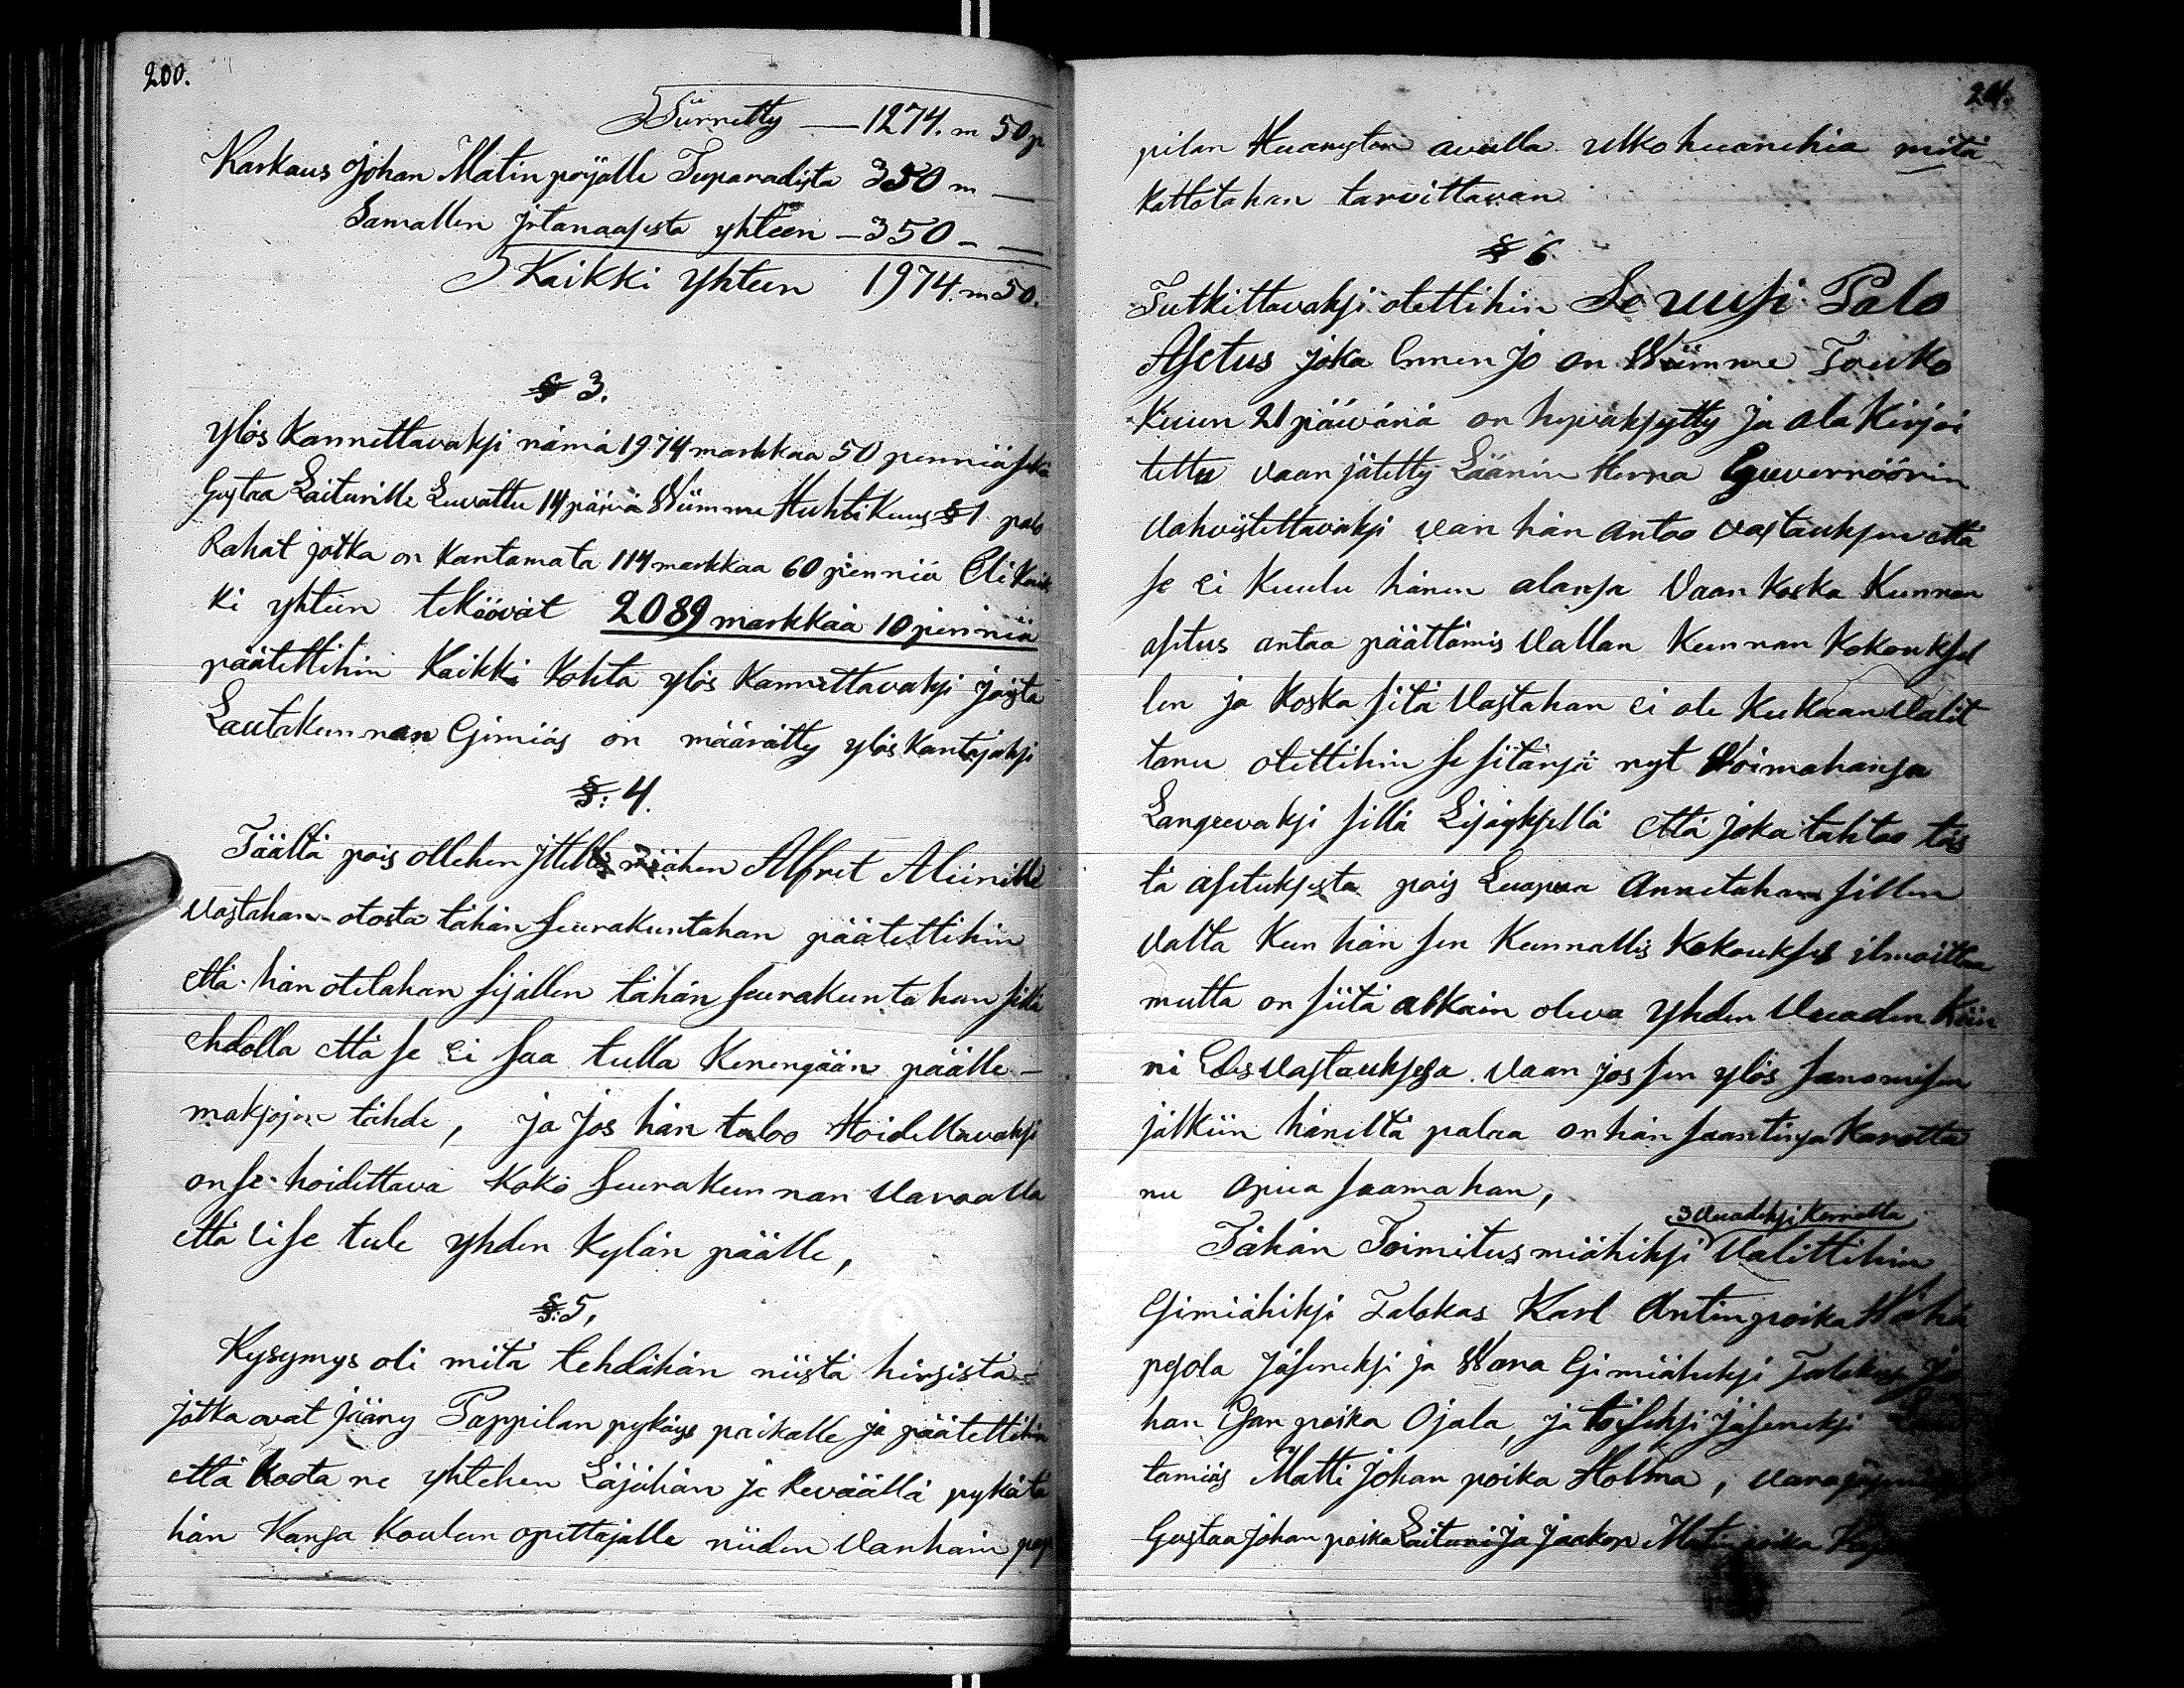 200.
Siirretty — 1274. m 50 p
Karkaus Johan Matin pojalle Tuparadista 350 m —
Samallen jstanaasesta yhteen — 350 — —
Kaikki Yhteen 1974. m 50.
§ 3.
Ylös Kannettavaksi nämä 1974 markkaa 50 penniä sekä
Gustaa Laiturille Luvattu 14 päivä Wiimme Huhti Kuus § 1 palo
Rahat jotka on Kantamata 114 markkaa 60 penniä Eli Kaik
ki yhteen teköövät 2089 markkaa 10 penniä
päätettihin Kaikki Kohta ylös Kannettavaksi joista
Lautakunnan Esimiäs on määrätty ylös Kantajaksi
§: 4.
Täältä pois ollehen jttelli miähen Alfret Aliinille
Vastahan-otosta tähän seurakuntahan päätettihin
että hän otetahan sisällen tähän seurakuntahan sillä
ehdolla että se ei saa tulla Kenengään päälle-
maksojan tähde, ja jos hän tuloo Hoidettavaksi
on se hoidettava Koko seurakunnan Varoalla
että ei se tule yhden Kylän päälle,
§: 5,
Kysymys oli mitä tehdähän niistä hirsistä
jotka ovat jääny Pappilan pykäys paikalle ja päätettihin
että Koota ne yhtehen Läjähän ja Keväällä pykätä
hän Kansa Koulun opettajalle niiden Vanhain pap
201.
pilan Huanesten avulla ulkohuanehia mitä
Kattotahan tarvittavan
§ 6
Tutkittavaksi otettihin Se uusi Palo
Asetus joka Ennen jo on Wiimme Touko
Kuun 21 päivänä on hyväksytty ja ala Kirjoi
tettu vaan jätetty Läänin Herra Guvernöörin
Vahvistettavaksi van hän antoo vastauksen että
se ei Kuulu hänen alansa Vaan Koska Kunnan
asetus antaa päättämis Vallan Kunnan Kokouksel
len ja Koska sitä Vastahan ei ole Kukaan Valit
tanu otettihin se sitänsä nyt Woimahansa
Langeevaksi sillä Lisäyksellä että joka tahtoo täs
tä asetuksesta pois Luapua Annetahan sillen
Valta Kun hän sen Kunnallis Kokoukses ilmoittaa
mutta on siitä alkain oleva yhden Vuaden Kiin
ni Edesvastauksesa. Vaan jos sen ylös sanomisen
jälkiin häneltä palaa on hän saantinsa Karotta
nu Apua saamahan,
3 Vuadeksi Kerralla
Tähän Toimitusmiähiksi Valittihin
Esimiähiksi Talokas Karl Antinpoika Wähä
pesola jäseneksi ja Wara Esimiäheksi Talokas Jo
han Esan poika Ojala, ja toiseksi jäseneksi Lau
tamiäs Matti Johan poika Holma, varajäsen
Gustaa Johan poika Laituri ja Jaakop Matin poika